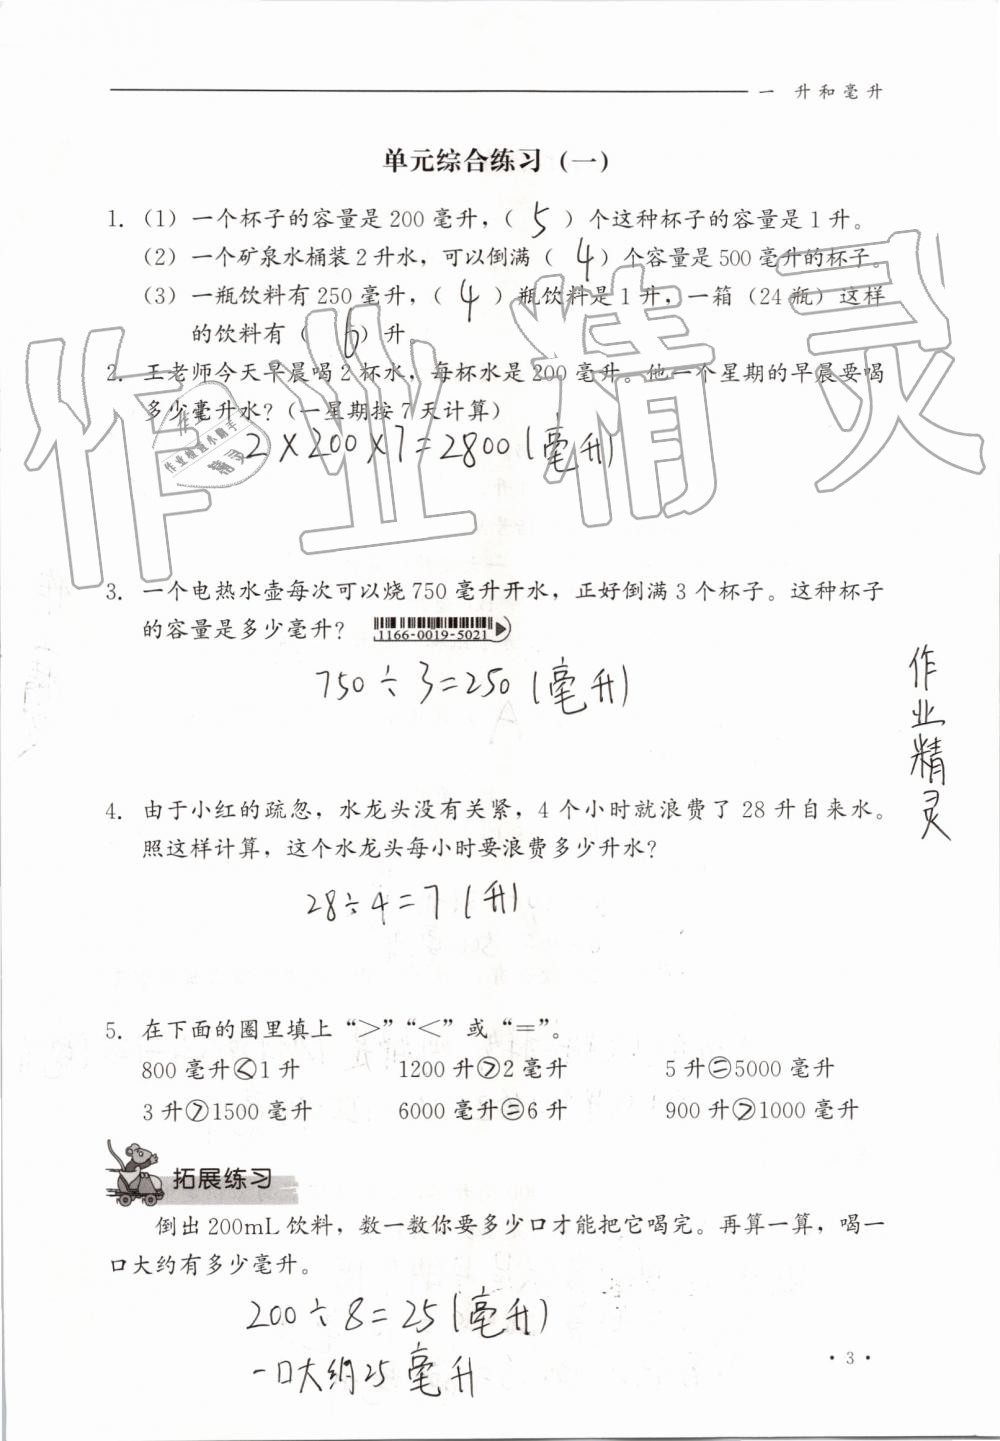 一 升和毫升
单元综合练习(一)
1. (1) 一个杯子的容量是200毫升,( 5 )个这种杯子的容量是1升。
(2) 一个矿泉水桶装2升水,可以倒满( 4 )个容量是500毫升的杯子。
(3) 一瓶饮料有250毫升,( 4 )瓶饮料是1升,一箱(24瓶)这样
的饮料有( 6 )升。
2. 王老师今天早晨喝2杯水,每杯水是200毫升。他一个星期的早晨要喝
多少毫升水?(一星期按7天计算)
2×200×7=2800(毫升)
作业精灵
作业检查小助手
精灵
3. 一个电热水壶每次可以烧750毫升开水,正好倒满3个杯子。这种杯子
的容量是多少毫升?
1166-0019-5021
750÷3=250(毫升)
作业精灵
4. 由于小红的疏忽,水龙头没有关紧,4个小时就浪费了28升自来水。
照这样计算,这个水龙头每小时要浪费多少升水?
28÷4=7(升)
5. 在下面的圈里填上“>”“<”或“=”。
800毫升<1升 1200升>2毫升 5升=5000毫升
3升>1500毫升 6000毫升=6升 900升>1000毫升
拓展练习
倒出200mL饮料,数一数你要多少口才能把它喝完。再算一算,喝一
口大约有多少毫升。
200÷8=25(毫升)
一口大约25毫升
·3·